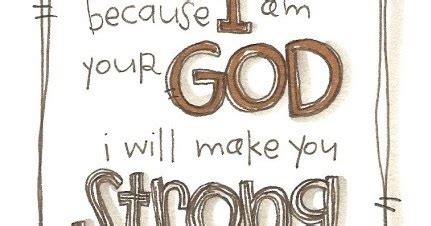 because I am
your GOD
i will make you
Strong